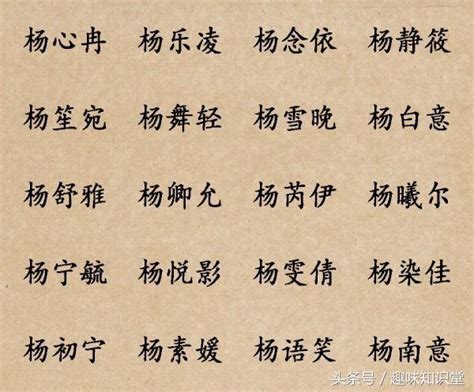 杨心冉 杨乐凌 杨念依 杨静筱
杨笙宛 杨舞轻 杨雪晚 杨白意
杨舒雅 杨卿允 杨芮伊 杨曦尔
杨宁毓 杨悦影 杨雯倩 杨染佳
杨初宁 杨素媛 杨语笑 杨南意
头条号/趣味知识堂